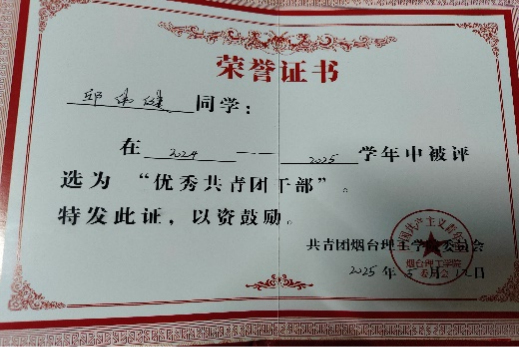 荣誉证书
邱伟健同学：
在 2024 —— 2025 学年中被评
选为 “优秀共青团干部”。
特发此证，以资鼓励。
共青团烟台理工学院委员会
2025年5月
烟台理工学院
委员会